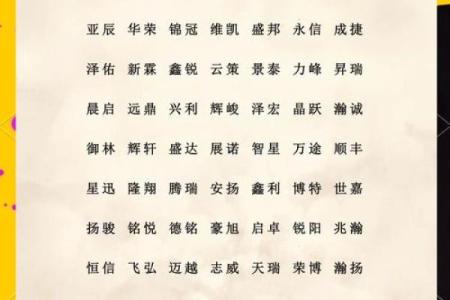 亚辰 华荣 锦冠 维凯 盛邦 永信 成捷
泽佑 新霖 鑫锐 云策 景泰 力峰 昇瑞
晨启 远鼎 兴利 辉峻 泽宏 晶跃 瀚诚
御林 辉轩 盛达 展诺 智星 万途 顺丰
星迅 隆翔 腾瑞 安扬 鑫利 博特 世嘉
扬骏 铭悦 德铭 豪旭 启卓 锐阳 兆瀚
恒信 飞弘 迈越 志威 天瑞 荣博 瀚扬